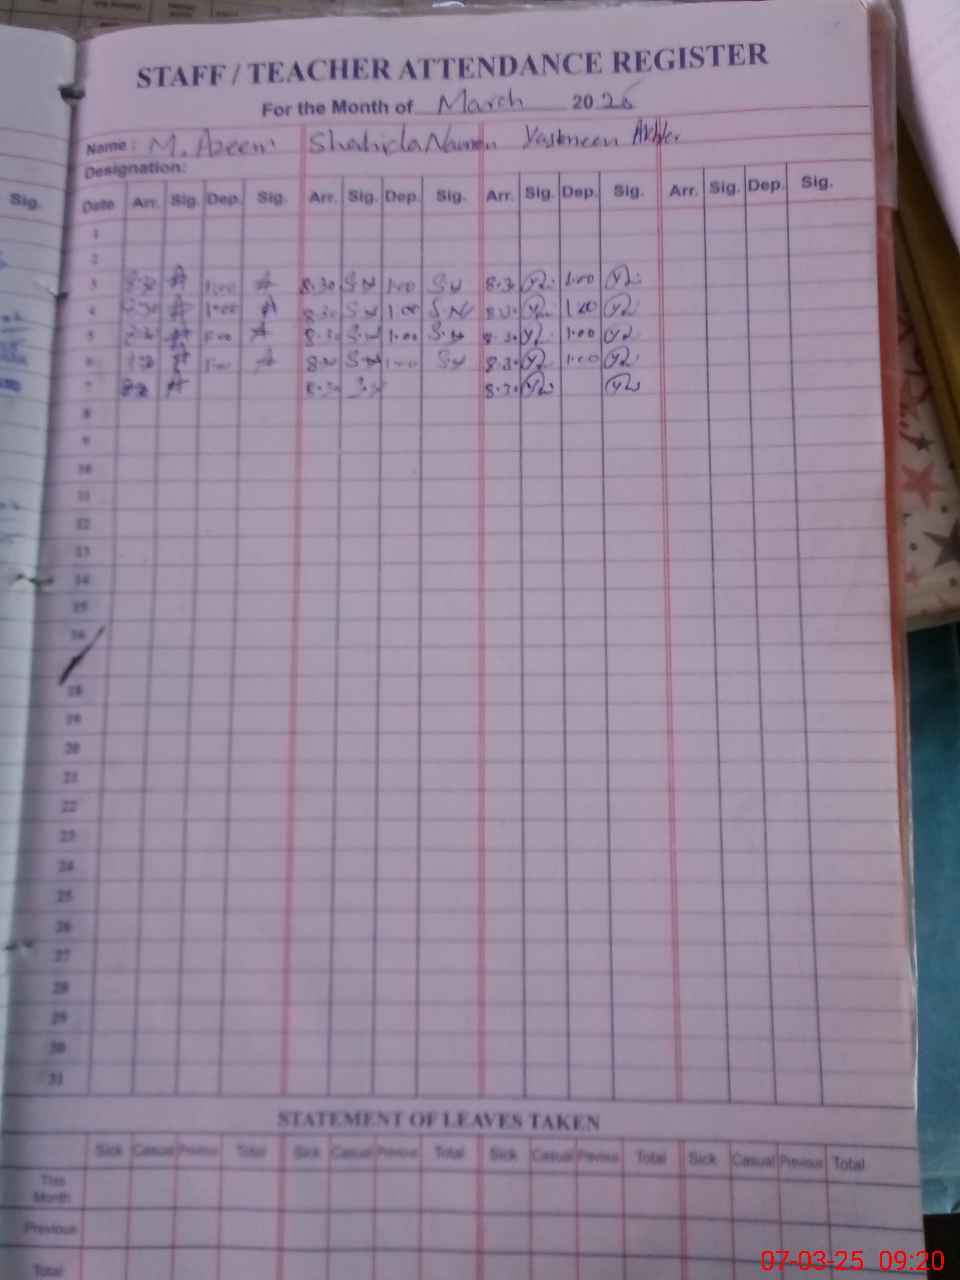 STAFF / TEACHER ATTENDANCE REGISTER
For the Month of March 20 25
Name: M. Azeem Shahida Nasreen Yasmeen Akhter
Designation:
Sig. Date Arr. Sig. Dep. Sig. Arr. Sig. Dep. Sig. Arr. Sig. Dep. Sig. Arr. Sig. Dep. Sig.
1
2
3 8:30 1:00 8:30 S.N 1:00 S.N 8:30 1:00
4 8:30 1:00 8:30 S.N 1:00 S.N 8:30 1:00
5 8:30 1:00 8:30 S.N 1:00 S.N 8:30 1:00
6 1:00 8:30 S.N 1:00 S.N 8:30 1:00
7 8:30 S.N 8:30
8
9
10
11
12
13
14
15
16
18
19
20
21
22
23
24
25
26
27
28
29
30
31
STATEMENT OF LEAVES TAKEN
Sick Casual Previous Total Sick Casual Previous Total Sick Casual Previous Total Sick Casual Previous Total
This
Month
Previous
Total
07-03-25 09:20